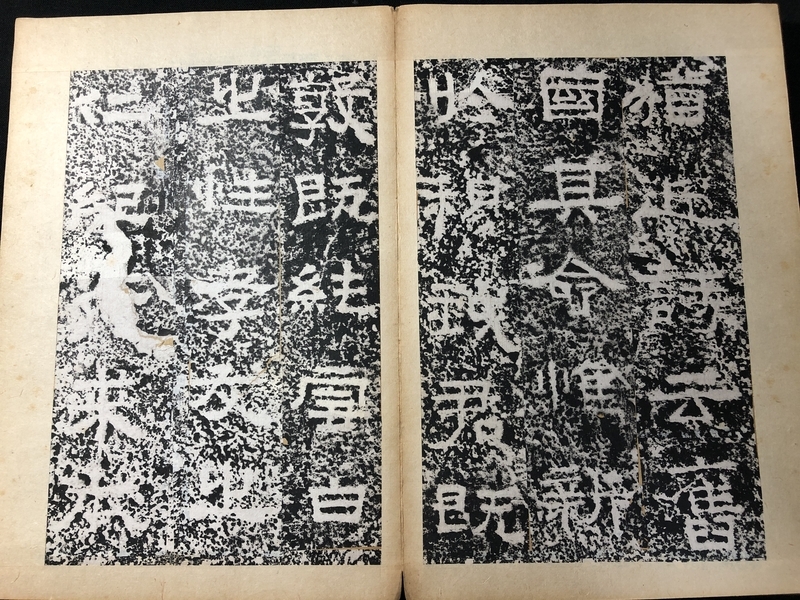 猶近詩云舊
國其命惟新
於穆我君既
敦既純雪白
之性孝友之
仁紀來本